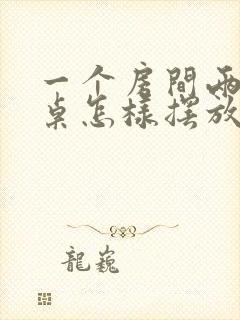 一个房間兩
桌怎樣摆放
龍巍